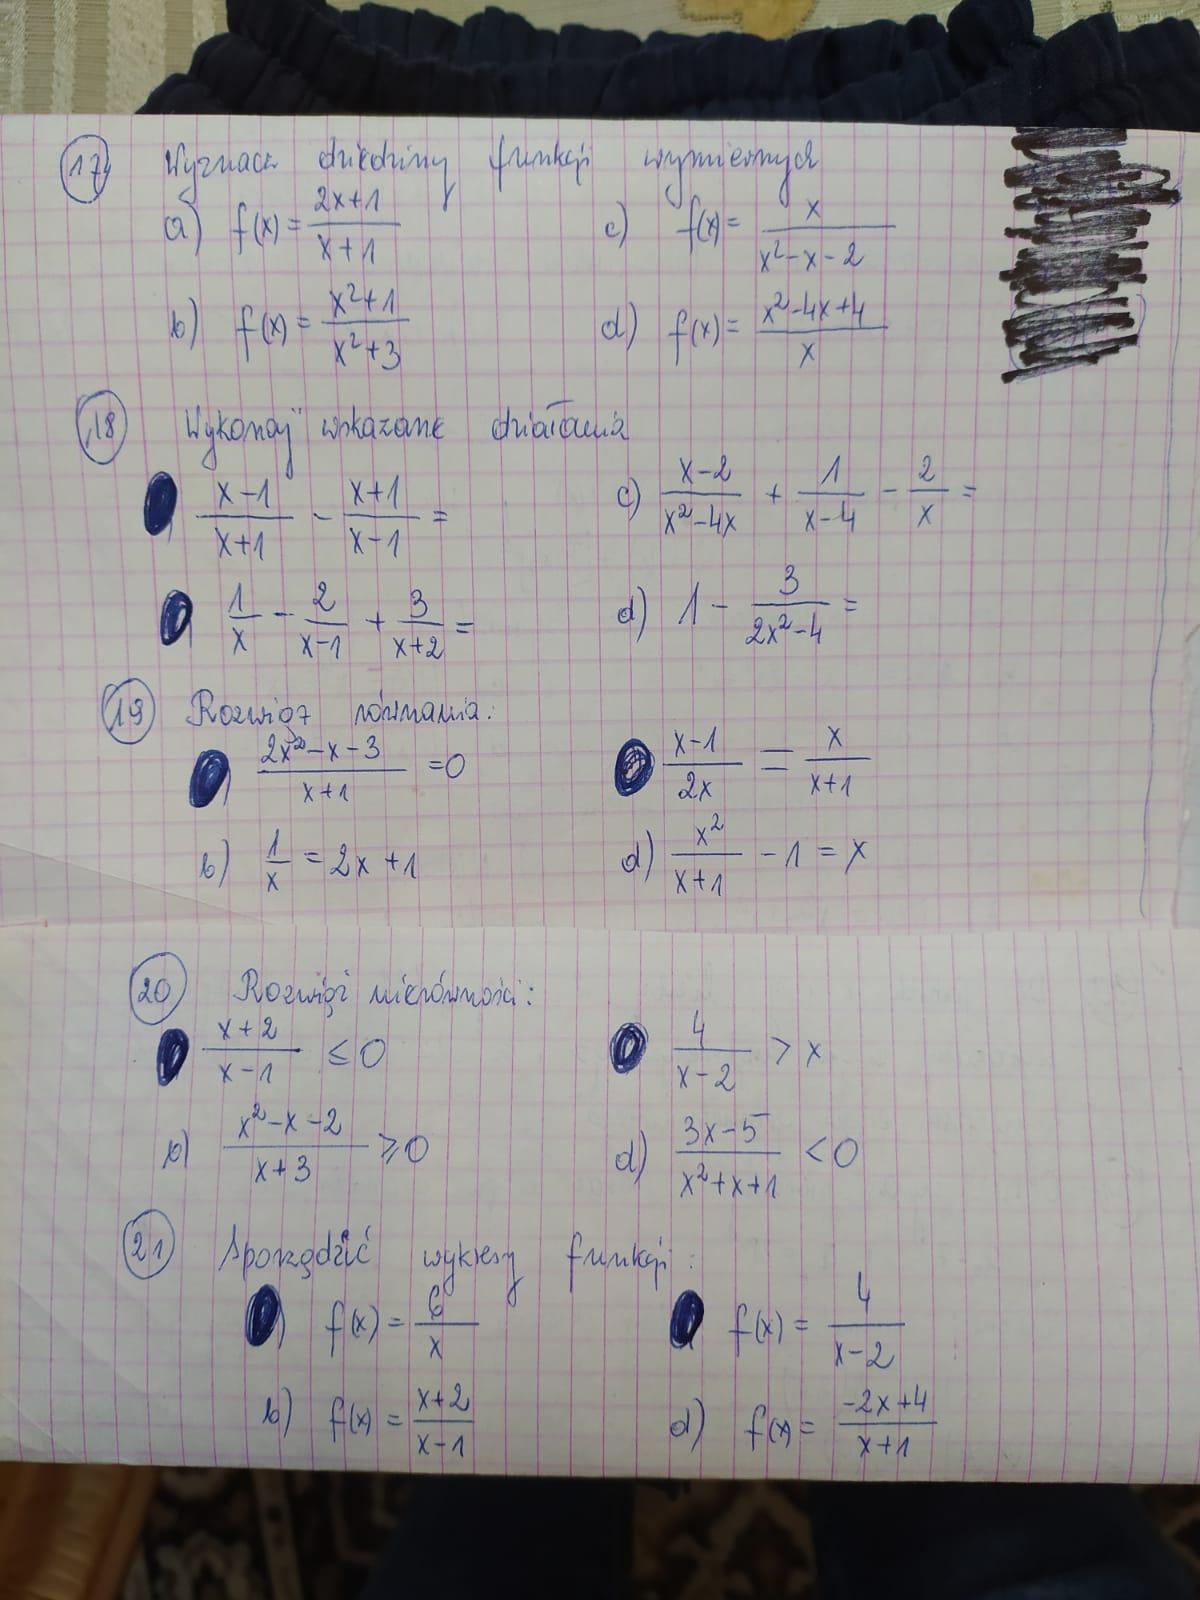 17 Wyznacz dziedziny funkcji wymiernych
a) f(x) = (2x+1)/(x+1) c) f(x) = x/(x²-x-2)
b) f(x) = (x²+1)/(x²+3) d) f(x) = (x²-4x+4)/x
18 Wykonaj wskazane działania
(x-1)/(x+1) - (x+1)/(x-1) = c) (x-2)/(x²-4x) + 1/(x-4) - 2/x =
1/x - 2/(x-1) + 3/(x+2) = d) 1 - 3/(2x²-4) =
19 Rozwiąż równania:
(2x²-x-3)/(x+1) = 0 (x-1)/2x = x/(x+1)
b) 1/x = 2x+1 d) x²/(x+1) - 1 = x
20 Rozwiąż nierówności:
(x+2)/(x-1) ≤ 0 4/(x-2) > x
b) (x²-x-2)/(x+3) ≥ 0 d) (3x-5)/(x²+x+1) < 0
21 Sporządzić wykresy funkcji:
) f(x) = 6/x f(x) = 4/(x-2)
b) f(x) = (x+2)/(x-1) d) f(x) = (-2x+4)/(x+1)